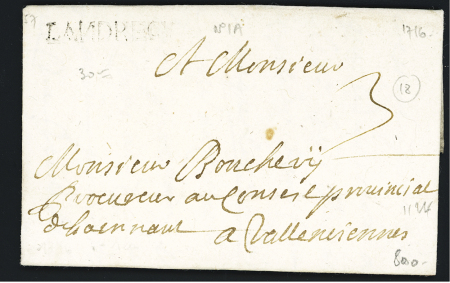 LANDRECY
N°1A
1716-
30-
A Monsieur
18
3
Monsieur Bouchevÿ
procureur au Conseil provincial
dhaennaut a Vallenciennes
800-